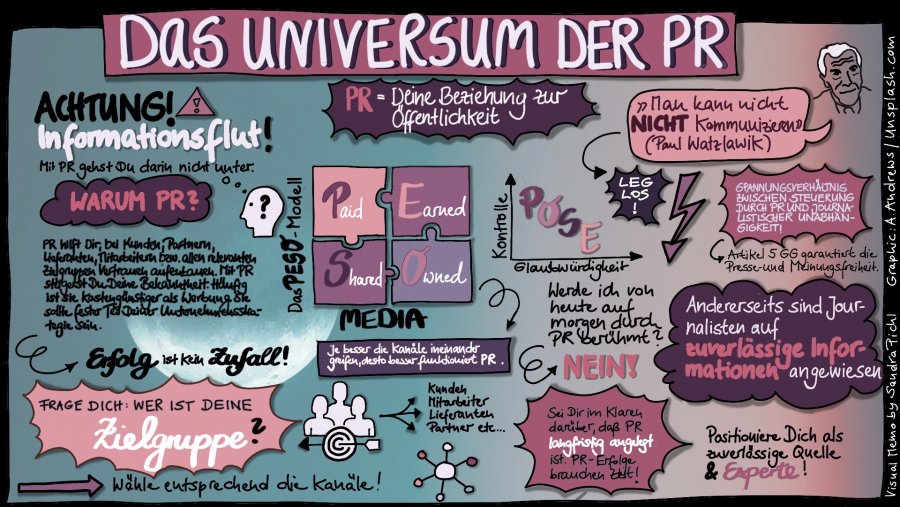 DAS UNIVERSUM DER PR
ACHTUNG!
Informationsflut!
Mit PR gehst Du darin nicht unter.
WARUM PR?
?
PR hilft Dir, bei Kunden, Partnern,
Lieferanten, Mitarbeitern bzw. allen relevanten
Zielgruppen Vertrauen aufzubauen. Mit PR
steigerst Du Deine Bekanntheit. Häufig
ist sie kostengünstiger als Werbung. Sie
sollte fester Teil Deiner Unternehmensstra-
tegie sein.
Erfolg ist kein Zufall!
FRAGE DICH: WER IST DEINE
Zielgruppe?
Wähle entsprechend die Kanäle!
PR = Deine Beziehung zur
Öffentlichkeit
Das PESO-Modell
Paid
Earned
Shared
Owned
MEDIA
Je besser die Kanäle ineinander
greifen, desto besser funktioniert PR.
Kunden
Mitarbeiter
Lieferanten
Partner etc...
Kontrolle
POSE
Glaubwürdigkeit
LEG
LOS
!
Werde ich von
heute auf
morgen durch
PR berühmt?
NEIN!
Sei Dir im Klaren
darüber, daß PR
langfristig angelegt
ist. PR-Erfolge
brauchen Zeit!
„Man kann nicht
NICHT kommunizieren"
(Paul Watzlawik)
SPANNUNGSVERHÄLTNIS
ZWISCHEN STEUERUNG
DURCH PR UND JOURNA-
LISTISCHER UNABHÄN-
GIGKEIT!
Artikel 5 GG garantiert die
Presse- und Meinungsfreiheit.
Andererseits sind Jour-
nalisten auf
zuverlässige Infor-
mationen angewiesen
Positioniere Dich als
zuverlässige Quelle
& Experte!
Visual Memo by Sandra Pichl Graphic: A. Andrews / Unsplash.com